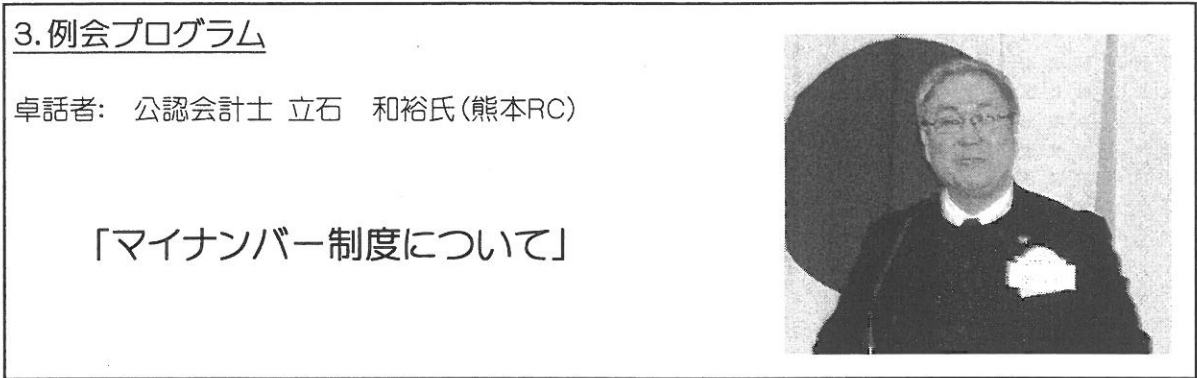 3.例会プログラム
卓話者: 公認会計士 立石 和裕氏(熊本RC)
「マイナンバー制度について」